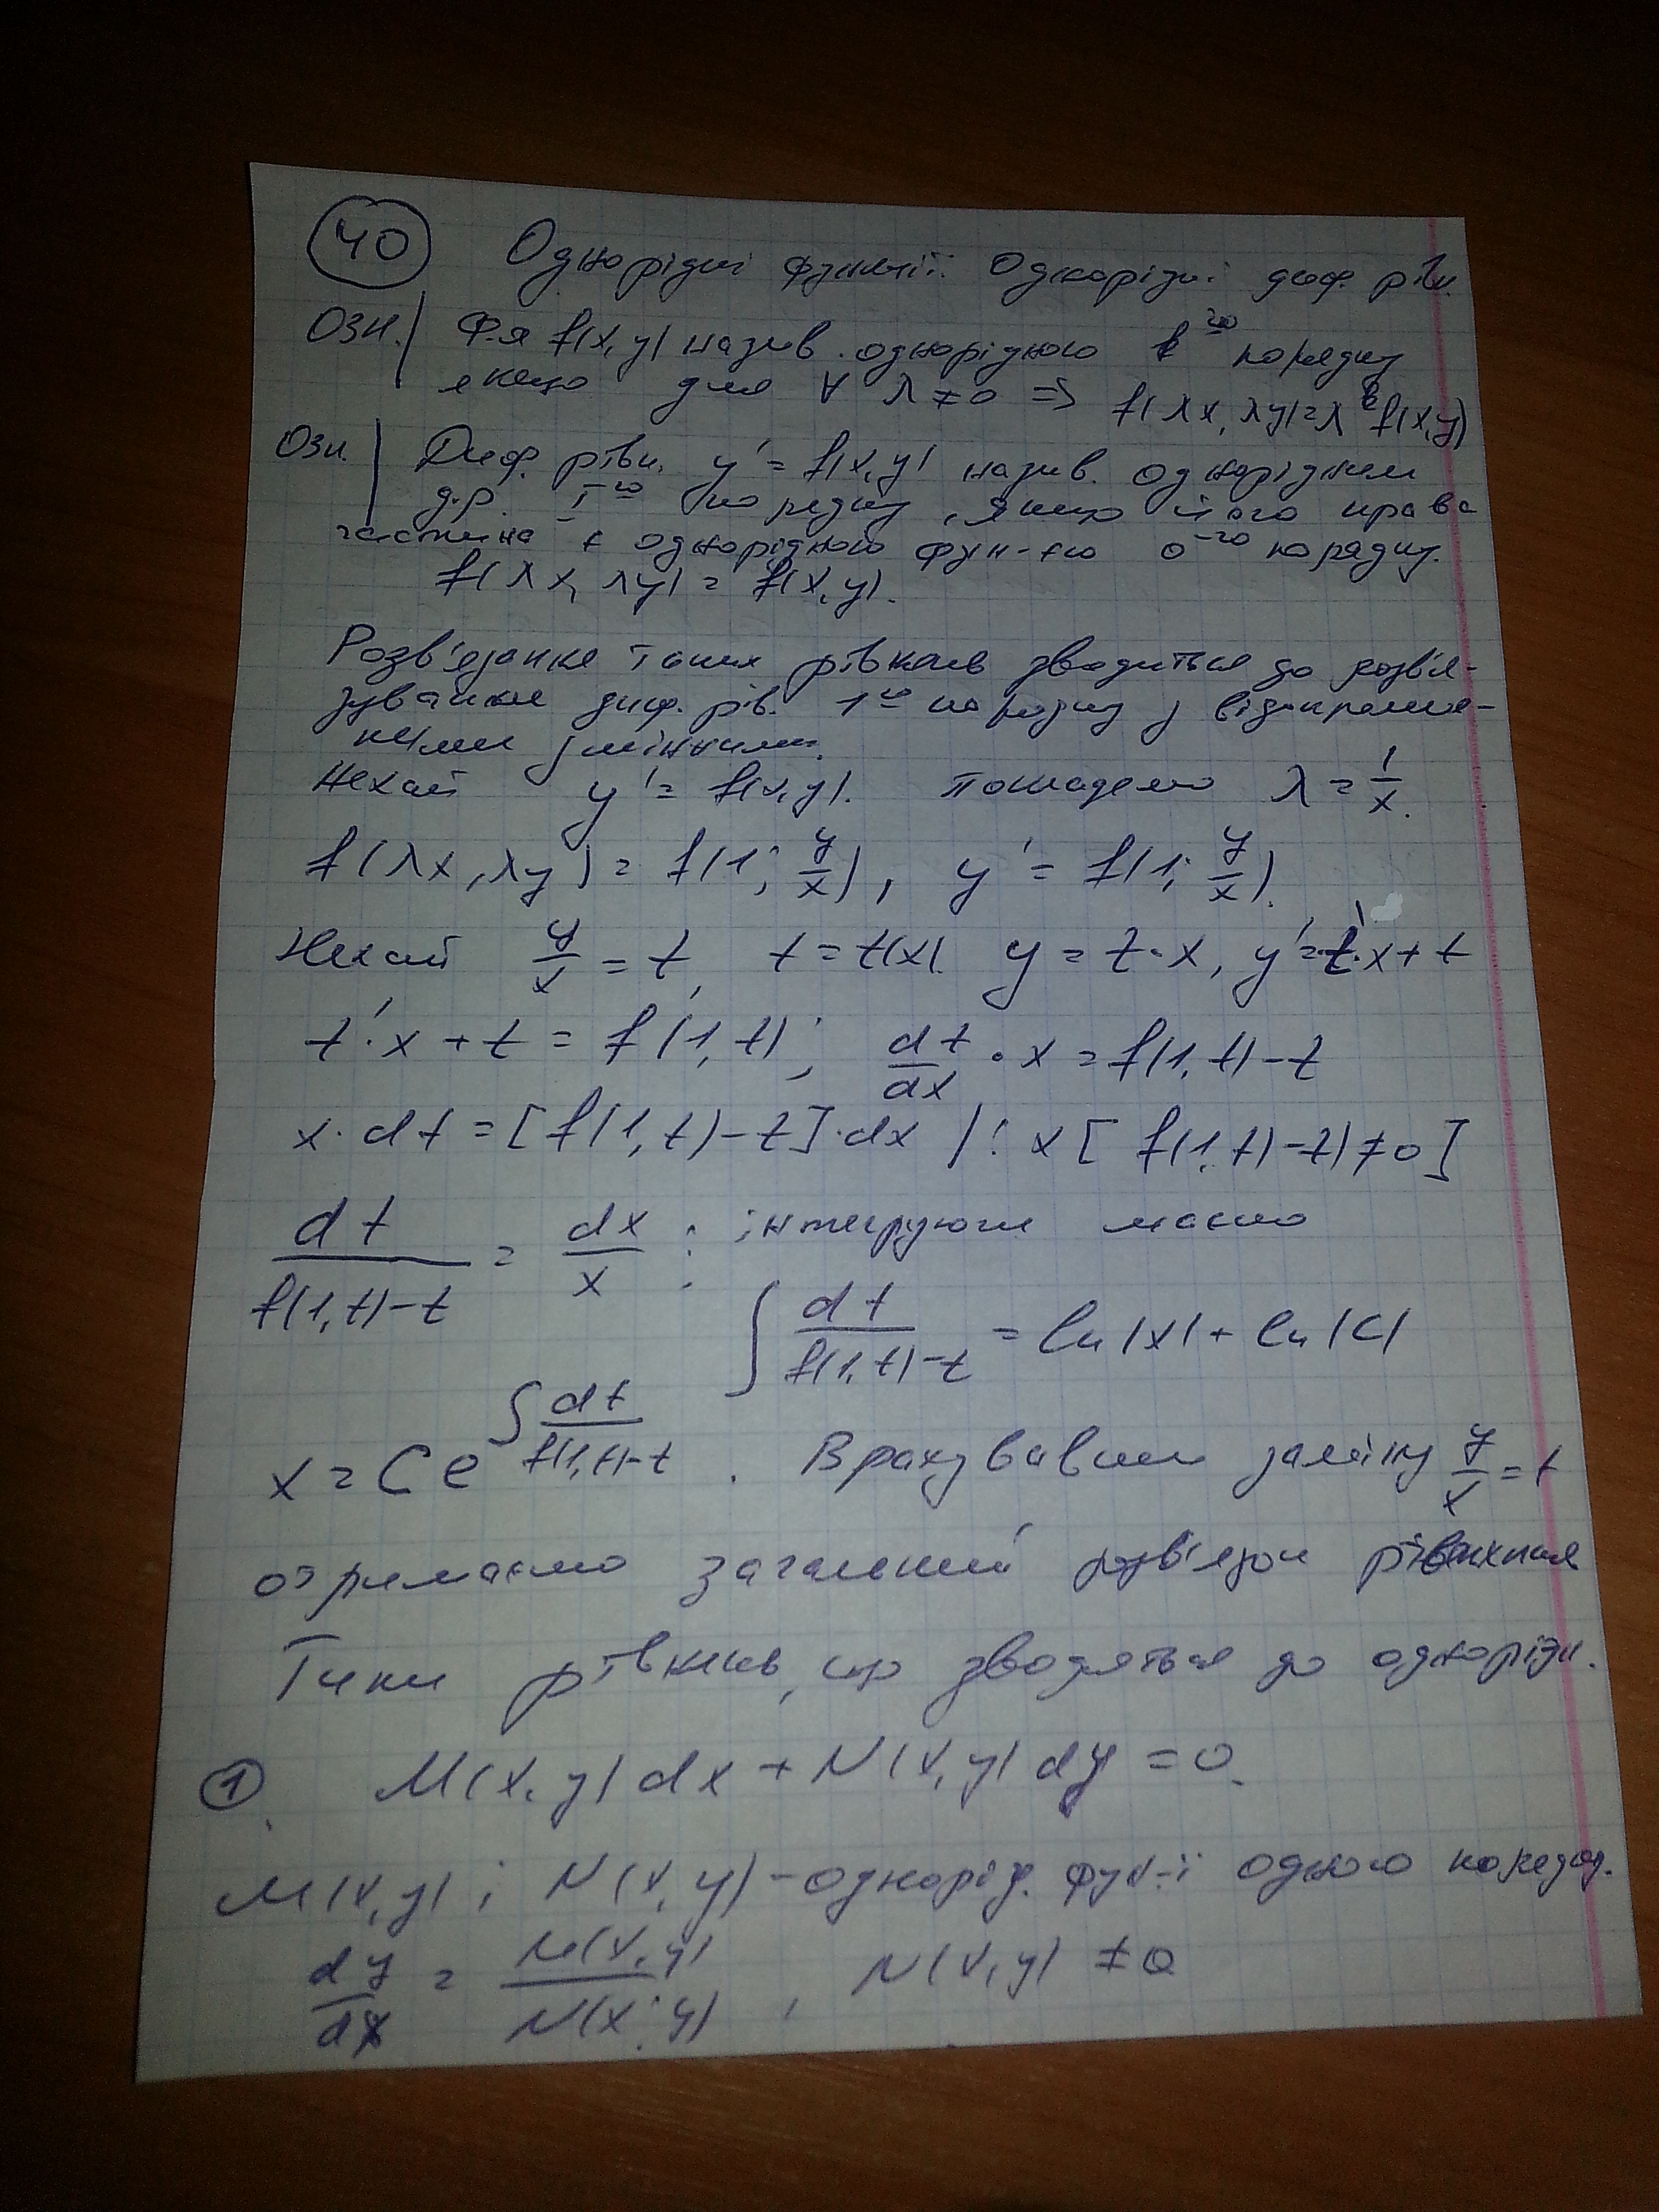 40 Однорідні функції. Однорідні диф. рівн.
Озн. Ф-я f(x,y) назив. однорідною k го порядку
якщо для ∀ λ≠0 => f(λx, λy)=λ^k f(x,y)
Озн. Диф. рівн. y' = f(x,y) назив. однорідним
д.р. I го порядку, якщо його права
частина є однорідною фун-єю 0-го порядку.
f(λx, λy) = f(x,y).
Розв'язання таких рівнянь зводиться до розв'я-
зування диф. рів. 1го порядку з відокремле-
ними змінними.
Нехай y' = f(x,y). покладемо λ = 1/x.
f(λx, λy) = f(1; y/x), y' = f(1; y/x).
Нехай y/x = t, t = t(x). y = t·x, y' = t'·x + t
t'·x + t = f(1,t); dt/dx · x = f(1,t) - t
x·dt = [f(1,t)-t]·dx |: x[f(1,t)-t)≠0]
dt/(f(1,t)-t) = dx/x ; інтегруючи маємо
∫ dt/(f(1,t)-t) = ln|x| + ln|C|
x = C e^{∫ dt/(f(1,t)-t)}. Врахувавши заміну y/x = t
отримаємо загальний розв'язок рівняння
Типи рівнянь, що зводяться до однорідн.
① M(x,y)dx + N(x,y)dy = 0.
M(x,y); N(x,y) - однорід. фун-ї одного порядку.
dy/dx = M(x,y)/N(x;y), N(x,y) ≠ 0